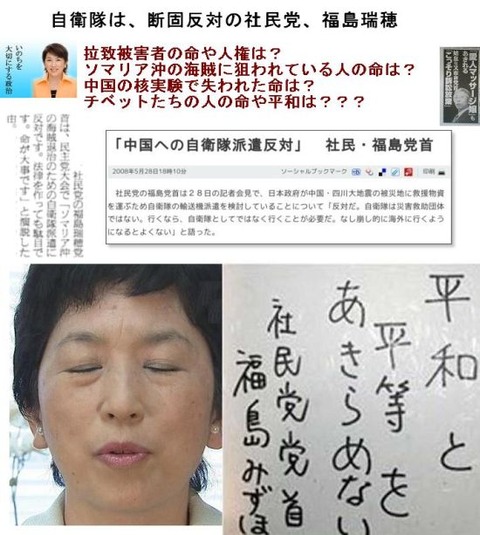 自衛隊は、断固反対の社民党、福島瑞穂
いのちを
大切にする政治
拉致被害者の命や人権は？
ソマリア沖の海賊に狙われている人の命は？
中国の核実験で失われた命は？
チベットたちの人の命や平和は？？？
社民党の福島瑞穂党
首は、民主党大会で「ソマリア沖
の海賊退治のための自衛隊派遣に
反対です。法律を作っても駄目で
す。命が大事です」と演説した
由。
「中国への自衛隊派遣反対」　社民・福島党首
2008年5月28日18時10分
ソーシャルブックマーク
印刷
社民党の福島党首は２８日の記者会見で、日本政府が中国・四川大地震の被災地に救援物資
を運ぶため自衛隊の輸送機派遣を検討していることについて「反対だ。自衛隊は災害救助団体
ではない。行くなら、自衛隊としてではなく行くことが必要だ。なし崩し的に海外に行くよう
になるとよくない」と語った。
平和と
平等を
あきらめない
社民党党首
福島みずほ